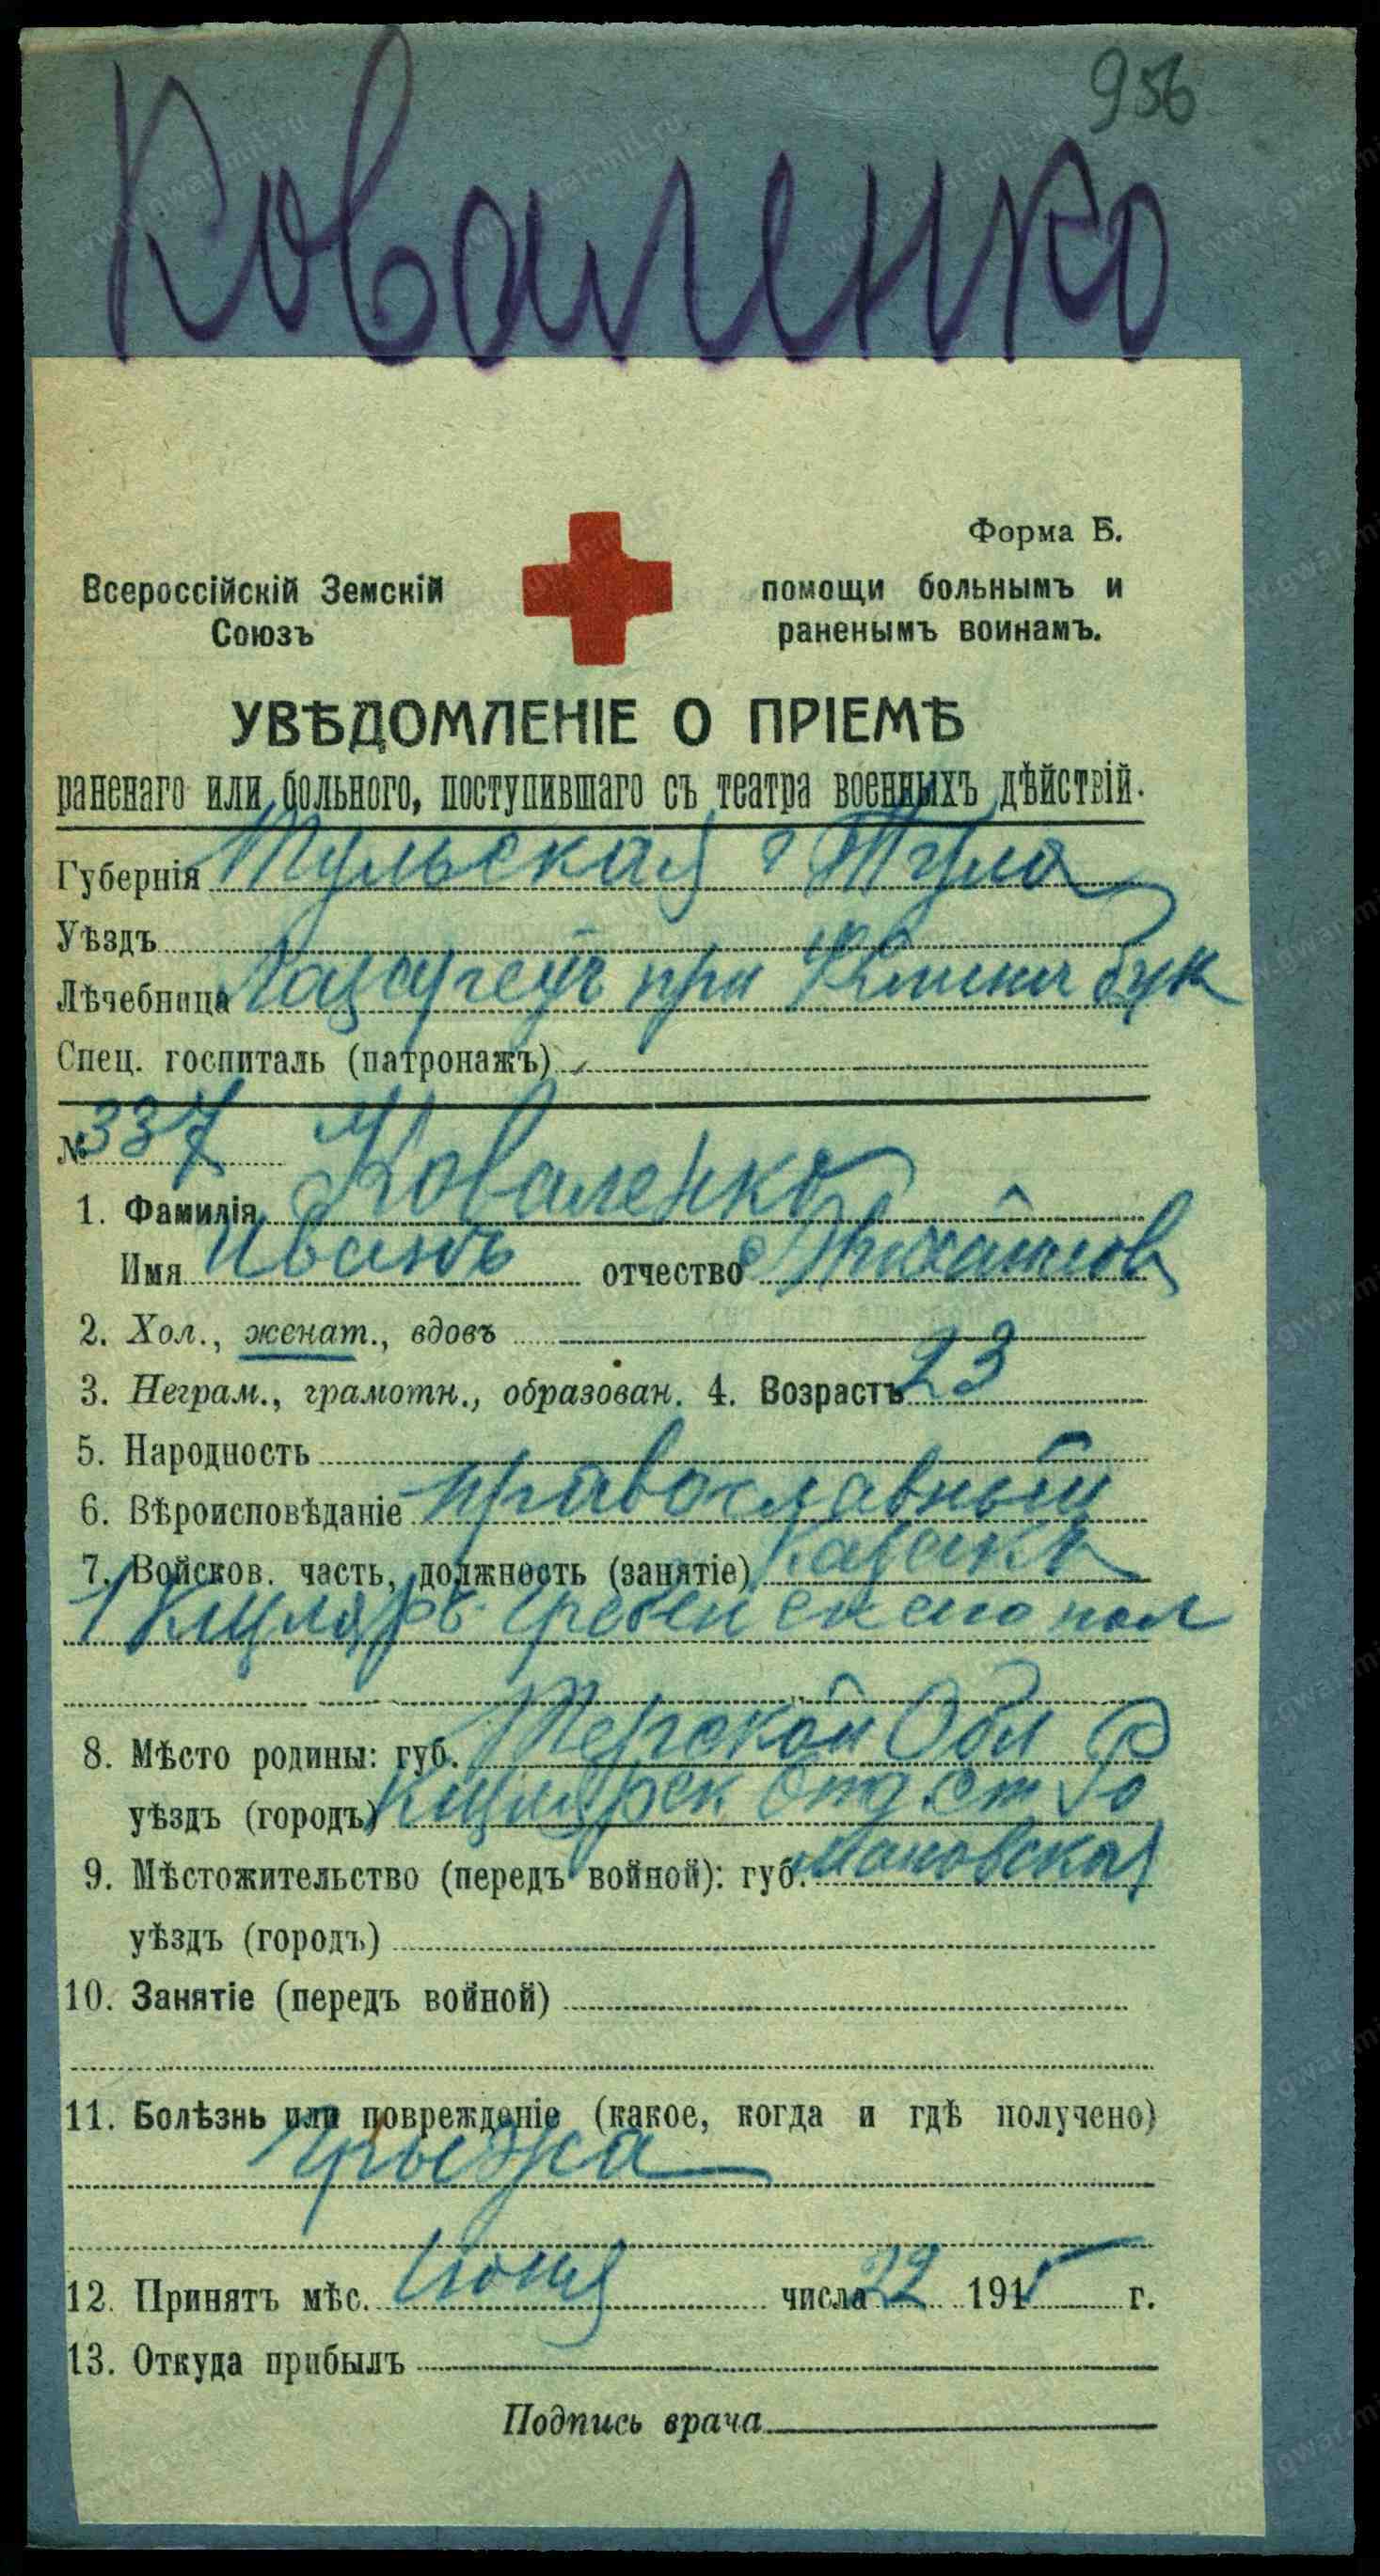 956
Коваленко
Форма Б.
Всероссійскій Земскій
Союзъ
помощи больнымъ и
раненымъ воинамъ.
УВѢДОМЛЕНІЕ О ПРІЕМѢ
раненаго или больного, поступившаго съ театра военныхъ дѣйствій.
Губернія Тульская г Тула
Уѣздъ
Лѣчебница Лазаретъ при
Спец. госпиталь (патронажъ)
№ 337
1. Фамилія Коваленко
Имя Иванъ отчество Михайлов
2. Хол., женат., вдовъ
3. Неграм., грамотн., образован. 4. Возрастъ 23
5. Народность
6. Вѣроисповѣданіе православный
7. Войсков. часть, должность (занятіе) казакъ
1 Кизляро Гребенского пол
8. Мѣсто родины: губ. Терской Обл
уѣздъ (городъ) Кизлярск Отд ст Ро
9. Мѣстожительство (передъ войной): губ. мановская
уѣздъ (городъ)
10. Занятіе (передъ войной)
11. Болѣзнь или поврежденіе (какое, когда и гдѣ получено)
Грыжа
12. Принятъ мѣс. Июня числа 22 1915 г.
13. Откуда прибылъ
Подпись врача